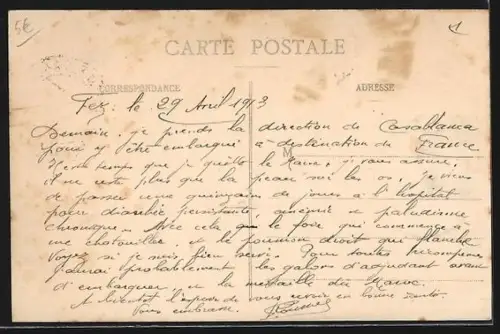 5€
1
CARTE POSTALE
CORRESPONDANCE
ADRESSE
Fez le 29 Avril 1913
Demain, je prends la direction de Casablanca
pour y être embarqué à destination de France
temps que je quitte le Maroc, je vous assure,
il ne reste plus que la peau sur les os. Je viens
de passer une quinzaine de jours à l'hôpital
pour diarrhée persistante, anémie et paludisme
chronique. Avec cela que le foie qui commence à
me chatouiller, et le poumon droit qui flanche
Voyez si je suis bien servi. Pour toutes récompenses
j'aurai probablement les galons d'adjudant avant
d'embarquer et la médaille du Maroc.
A bientôt l'espoir de vous revoir en bonne santé.
Vous embrasse